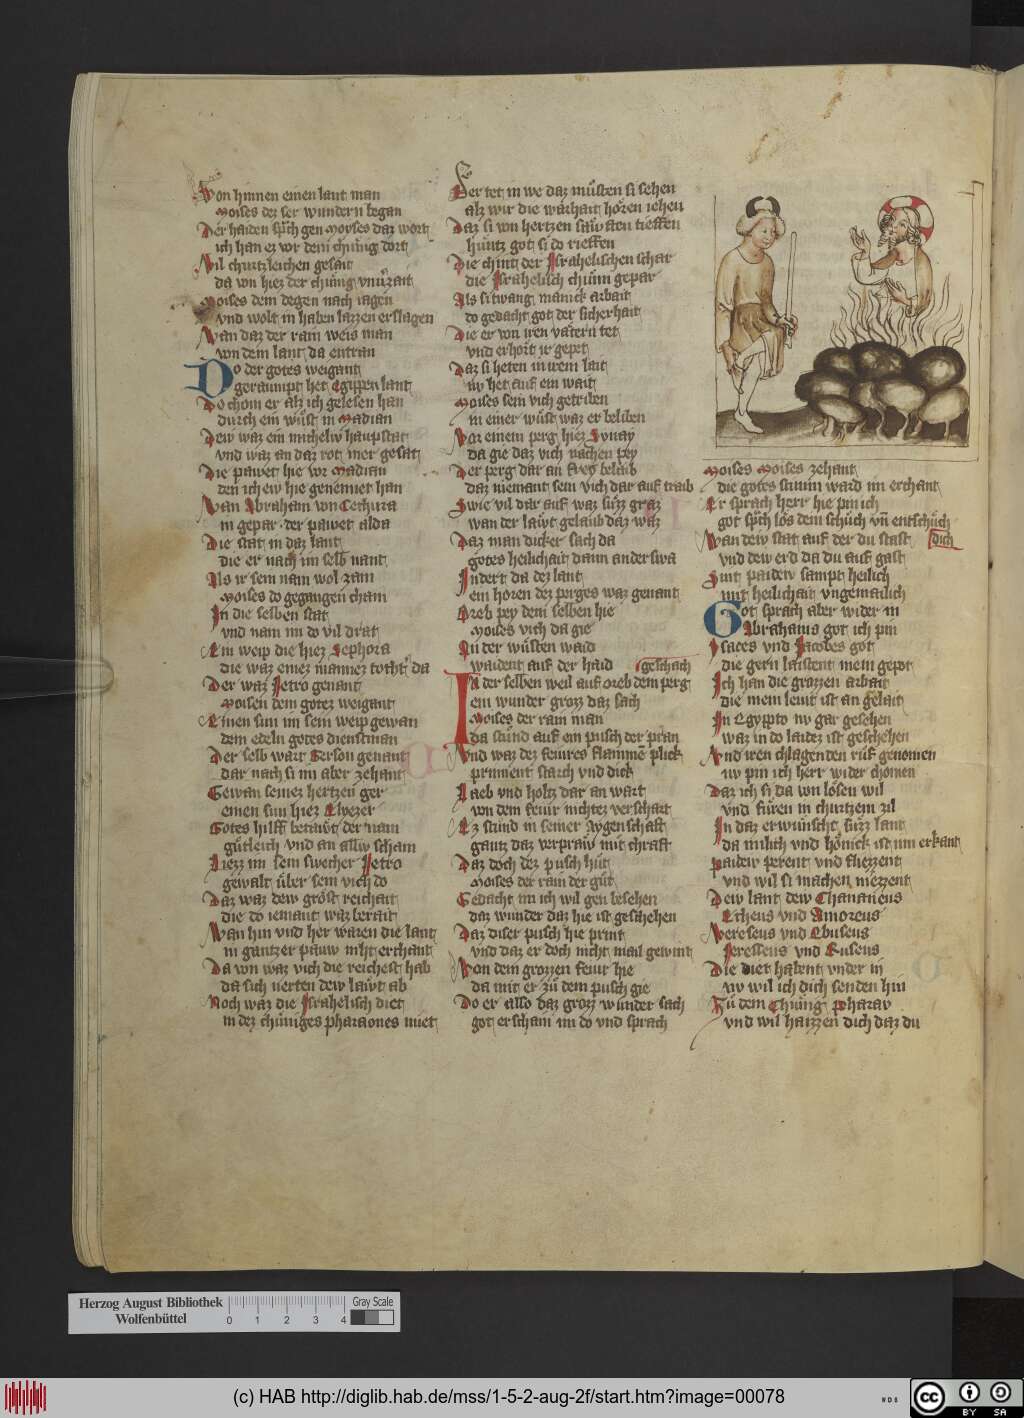 Von hinnen einen lant man
Moises dez ser wundern began
Der haiden spͣch gen Moyses daz wort
ich han ez vor dem chünig dort
Vil churtzleichen gesait
da von hiez der chünig vnuͤrzait
Moises dem degen nach iagen
vnd wolt in haben lazzen erslagen
Wan daz der rain weis man
von dem lant da entran
Do der gotes weigant
geraumpt het Egipten lant
Do chom er alz ich gelesen han
durch ein wuͤst in Madian
Dew waz ein michelw haupstat
vnd waz an daz rot mer gesat
Die pawet hie vor Madian
den ich ew hie genennet han
Wan Abraham von Cethura
in gepar der pawet alda
Die stat in daz lant
die er nach im selb nant
Als ir sein nam wol zam
Moises do gegangen cham
In die selben stat
vnd nam im do vil drat
Ein weip die hiez Sephora
die waz eines mannez tochtͤ da
Der waz Jetro genant
Moisen dem gotez weigant
Einen sun im sein weip gewan
dem edeln gotes dienstman
Der selb wart Gerson genant
dar nach si im aber zehant
Gewan seinez hertzen ger
einen sun hiez Elyezer
Gotes hilff betawt der nam
guͤtleich vnd an allw scham
Liezz im sein swecher Jetro
gewalt uͤber sein vich do
Daz waz dew groͤst reichait
die do iemant waz berait
Wan hin vnd her waren die lant
in gantzer pauw niht erchant
Da von waz vich die reichest hab
da sich nerten dew lawt ab
Noch waz die Jsrahelisch diet
in dez chuniges pharaones miet
Der tet in we daz muͤsten si sehen
alz wir die warhait hoͤren iehen
Daz si von hertzen sawften tieffen
huntz got si do rieffen
Die chint der Jsrahelischen schar
die Jsrahelisch chunn gepar
Als si twang manick arbait
do gedacht got der sicherhait
Die er von iren vatern tet
vnd erhort ir gepet
Daz si heten in irem lait
nv het auf ein wait
Moises sein vich getriben
in einer wuͤst waz er beliben
Vor einem perg hiez Synay
da gie daz vich nachen pey
Der perg dar an frey belaib
daz niemant sein vich dar auf traib
Swie vil dar auf waz suͤzz graz
wan der lawt gelaub daz waz
Daz man dicker sach da
gotes heilichait dann anderswa
Jndert da dez lant
ein horen dez perges waz genant
Oreb pey dem selben hie
Moises vich da gie
Jn der wuͤsten waid
waident auf der haid geschach
Jn der selben weil auf oreb dem perg
ein wunder grozz daz sach
Moises der rain man
da stund auf ein pusch der pran
Vnd waz dez feures flammē plick
prinnent starch vnd dick
Laub vnd holtz dar an wart
von dem feuͤr nichtez verschart
Ez stund in seiner aygenschaft
gantz daz verpraw mit chraft
Daz doch dez pusch huͤt
Moises der rain der guͤt
Gedacht im ich wil gen besehen
daz wunder daz hie ist geschehen
Daz diser pusch hie print
vnd daz er doch nicht mail gewint
Von dem grozzen feur hie
da mit er zuͤ dem pusch gie
Do er allso daz grozz wunder sach
got erschain im do vnd sprach
Moises Moises zehant
die gotes stimm ward im erchant
Er sprach herr hie pin ich
got spͣch loͤs dein schuͤch vn̄ entschuͤch
Wan dew stat auf der du stast dich
vnd dew erd da du auf gast
Sint paidew sampt heilich
mit heilichait vngemailich
Got sprach aber wider in
Abrahams got ich pin
Jsaces vnd Jacobes got
die gern laistent mein gepot
Ich han die grozzen arbait
die mein lewt ist an gelait
Jn Egypto nv gar gesehen
waz in do laidez ist geschehen
Vnd iren chlagenden ruf genomen
nv pin ich herr wider chomen
Daz ich si da von loͤsen wil
vnd fuͤren in churtzem zil
Jn daz erwunscht suͤzz lant
da milich vnd hoͤnick ist inn erkant
Paidew perent vnd fliezzent
vnd wil si machen niezzent
Dew lant dew Chananeus
Etheus vnd Amoreus
Vereseus vnd Ebuseus
Jersseus vnd Euseus
Die diet habent vnder in
nv wil ich dich senden hin
Zu dem Chuͤnig Pharao
vnd wil haizzen dich daz du
Herzog August Bibliothek
Wolfenbüttel
0 1 2 3 4
Gray Scale
(c) HAB http://diglib.hab.de/mss/1-5-2-aug-2f/start.htm?image=00078
WDB
cc
BY SA